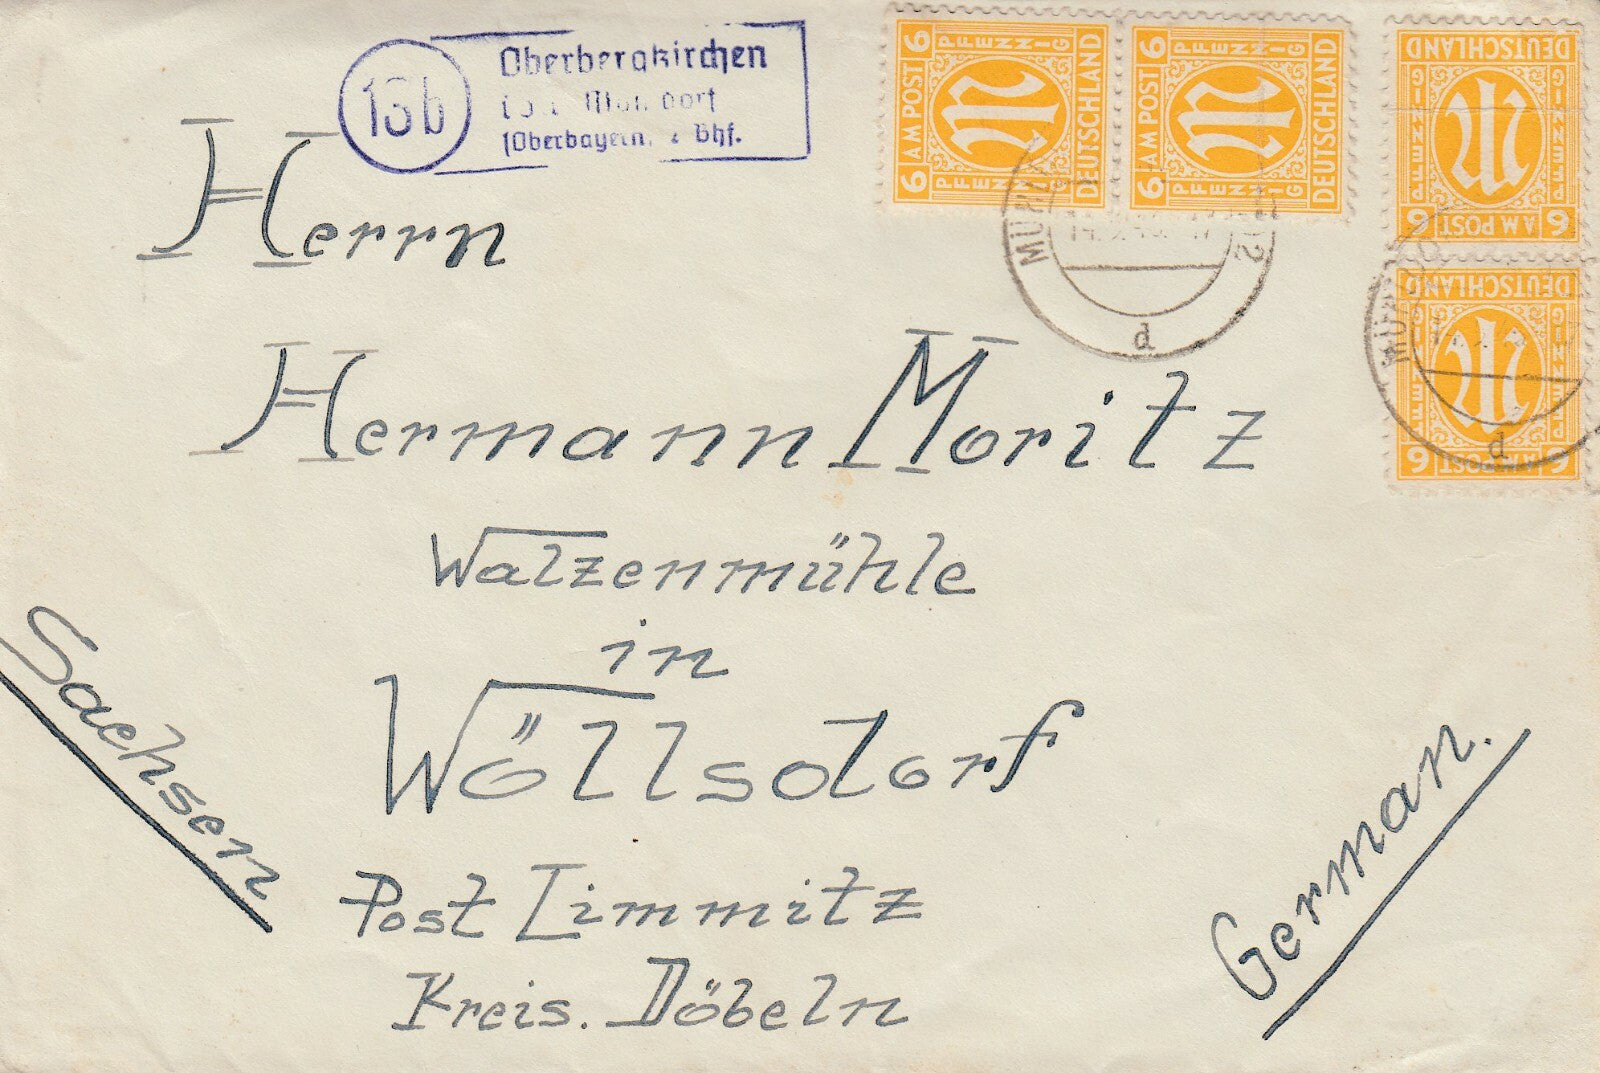 13b
Oberbergkirchen
(Oberbayern, 2 Bhf.
6 AM POST 6
PFENNIG
PFENNIG
DEUTSCHLAND
6 AM POST 6
PFENNIG
PFENNIG
DEUTSCHLAND
DEUTSCHLAND
PFENNIG
PFENNIG
6 AM POST 6
DEUTSCHLAND
PFENNIG
PFENNIG
6 AM POST 6
d
d
Herrn
Hermann Moritz
Walzenmühle
in
Wöllsdorf
Post Limmitz
Kreis. Döbeln
Sachsen
German.